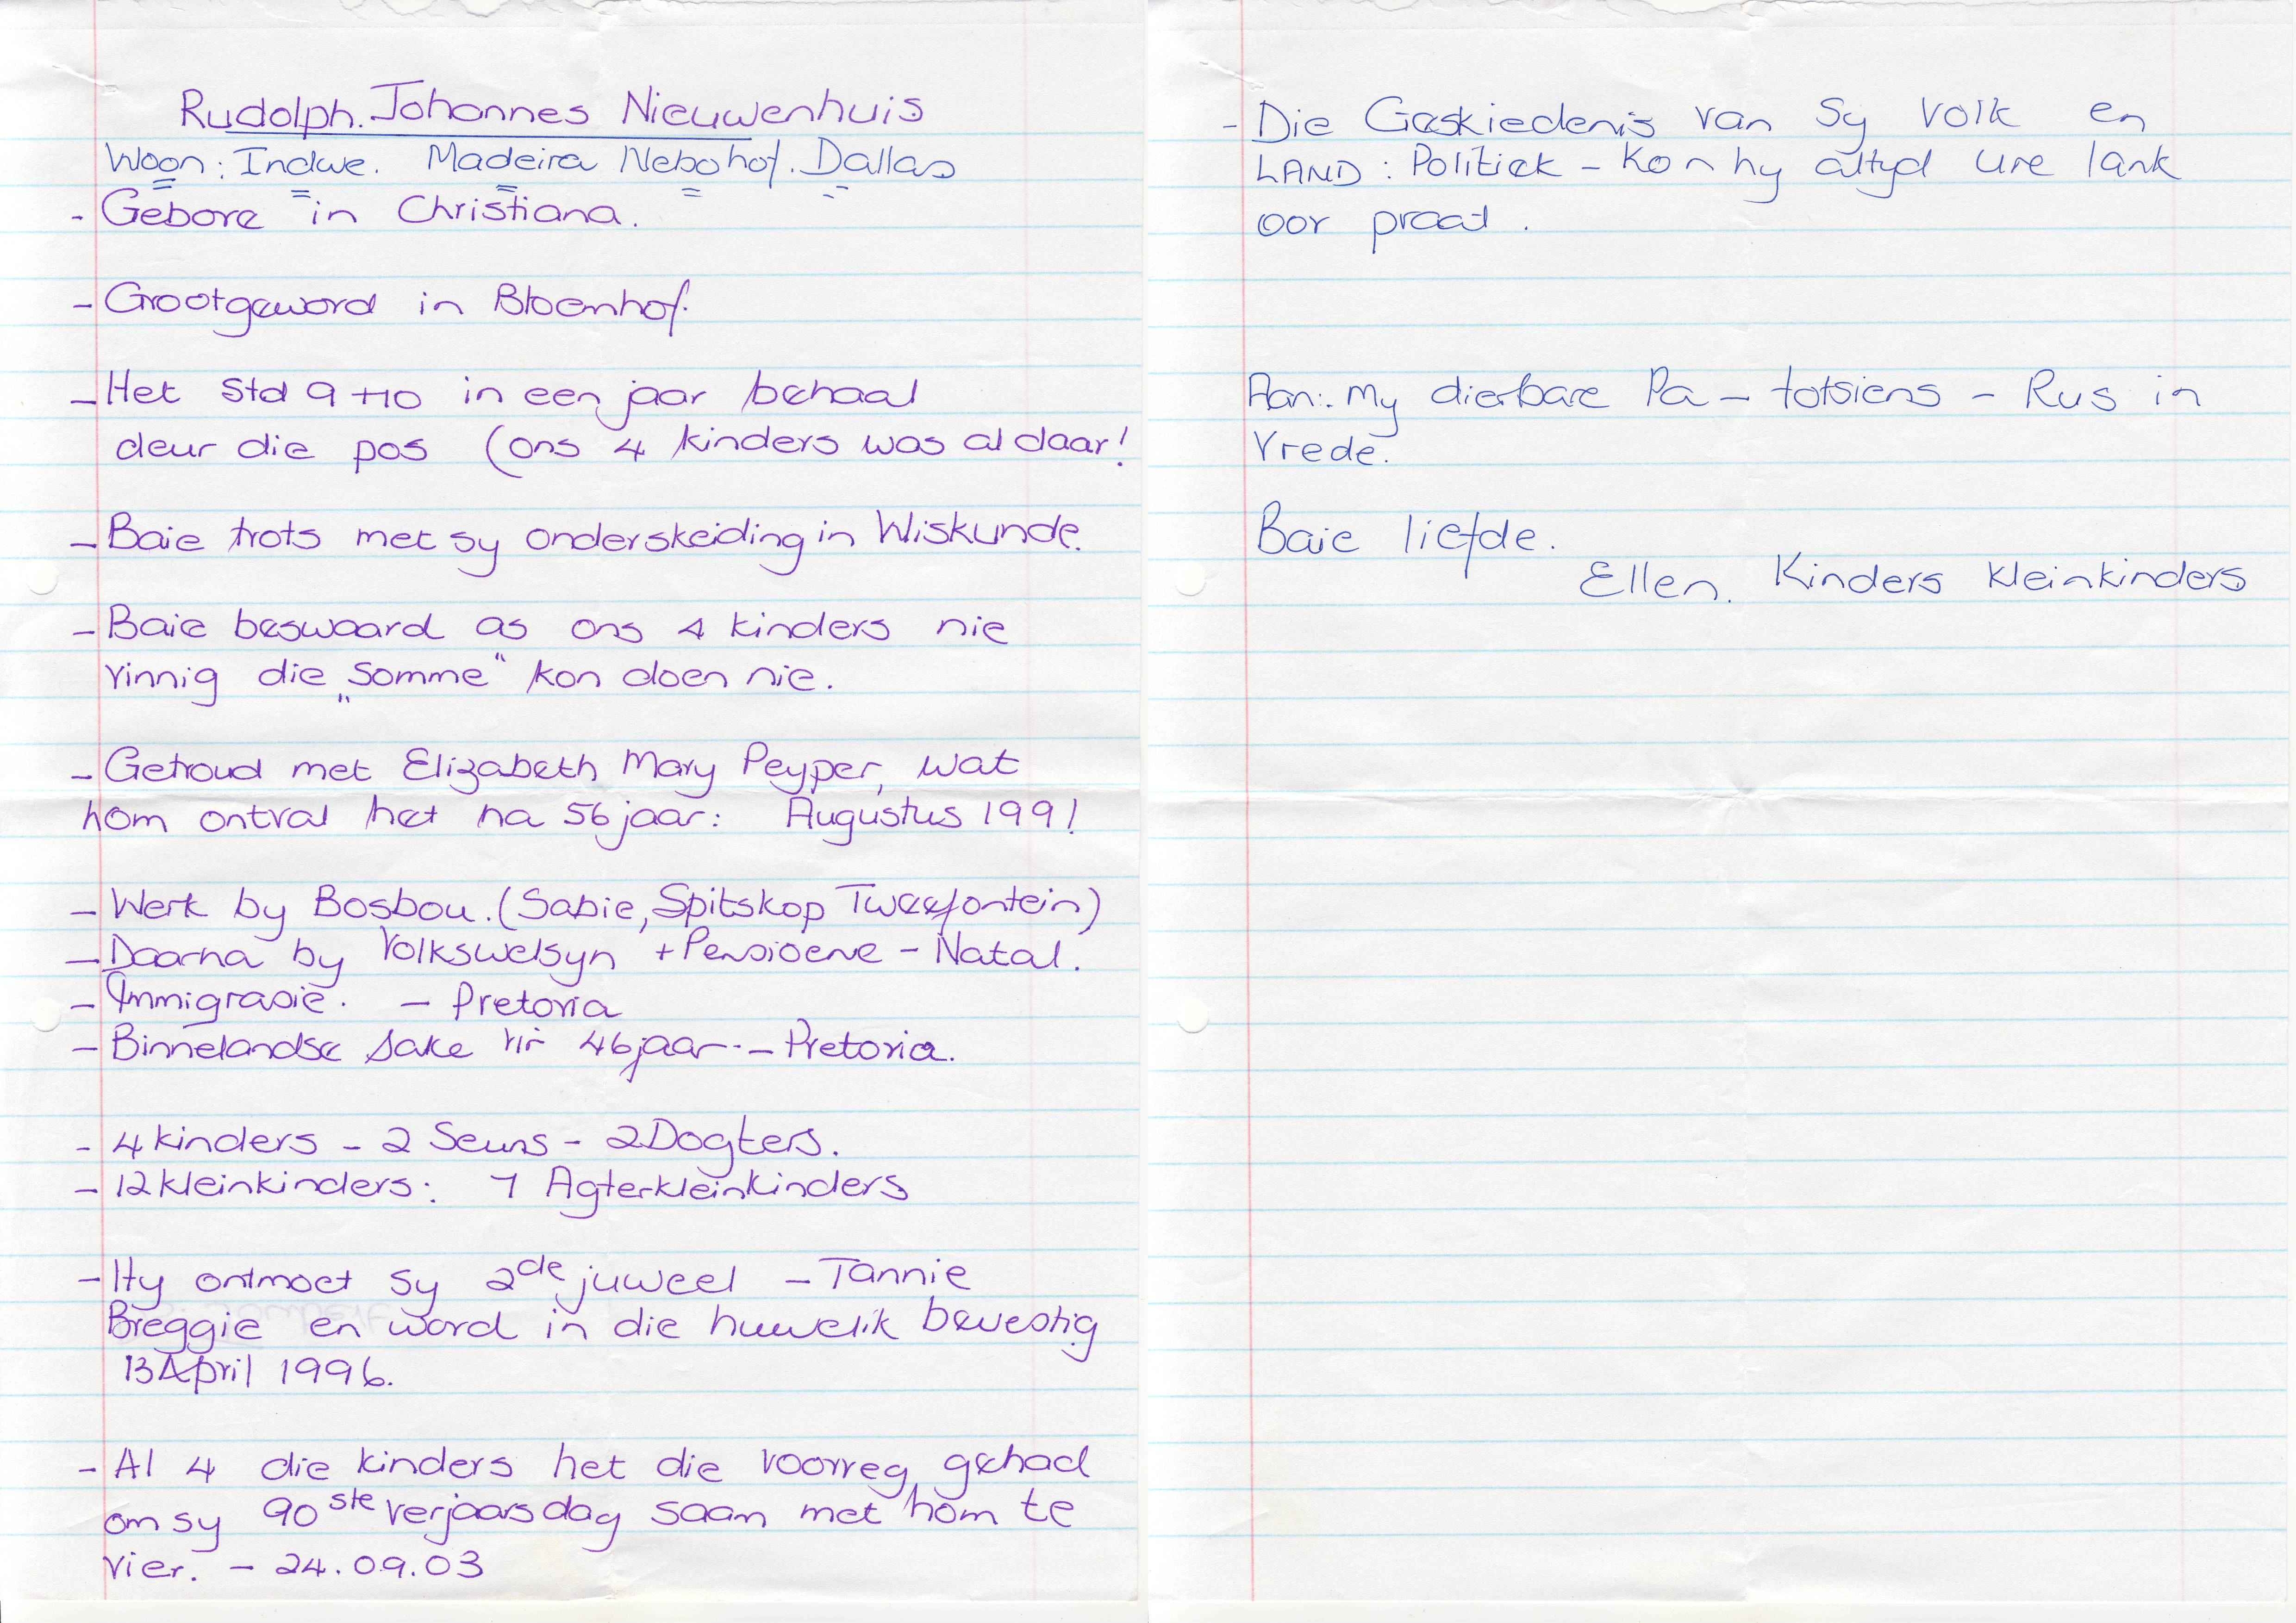 Rudolph. Johannes Nieuwenhuis
Woon: Indwe. Madeira Nebohof. Dallas
- Gebore in Christiana.
- Grootgeword in Bloemhof.
- Het Std 9 + 10 in een jaar behaal
deur die pos (ons 4 kinders was al daar!
- Baie trots met sy onderskeiding in Wiskunde.
- Baie beswaard as ons 4 kinders nie
vinnig die „somme" kon doen nie.
- Getroud met Elizabeth Mary Peyper, wat
hom ontval het na 56 jaar: Augustus 1991
- Werk by Bosbou. (Sabie, Spitskop Tweefontein)
- Daarna by Volkswelsyn + Pensioene - Natal.
- Immigrasie. - Pretoria
- Binnelandse Sake vir 46 jaar - Pretoria.
- 4 kinders - 2 Seuns - 2 Dogters.
- 12 kleinkinders: 7 Agterkleinkinders
- Hy ontmoet sy 2de juweel - Tannie
Breggie en word in die huwelik bevestig
13 April 1996.
- Al 4 die kinders het die voorreg gehad
om sy 90ste verjaarsdag saam met hom te
vier. - 24.09.03
- Die Geskiedenis van Sy Volk en
LAND : Politiek - Kon hy altyd ure lank
oor praat.
Aan: My dierbare Pa - totsiens - Rus in
Vrede.
Baie liefde.
Ellen. Kinders Kleinkinders